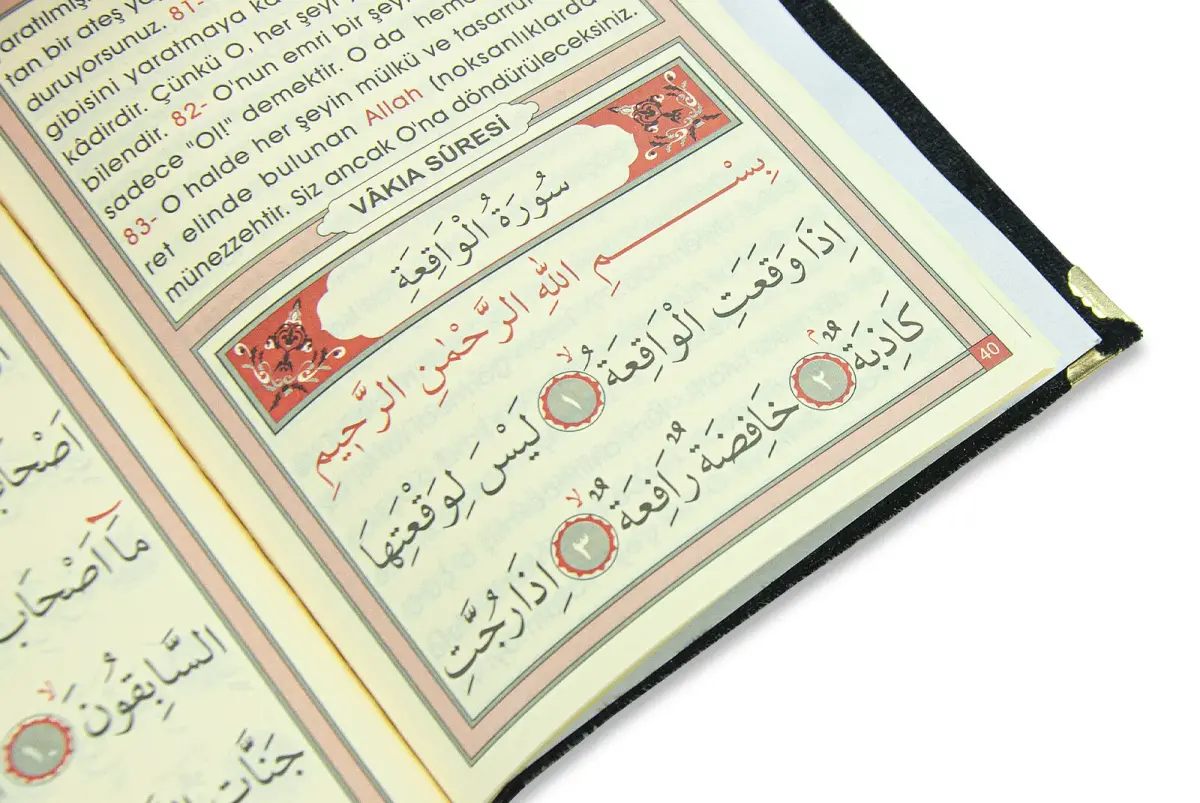 aratılmış. 81-
tan bir ateş
duruyorsunuz.
gibisini yaratmaya
kâdirdir. Çünkü O, her şeyi
bilendir. 82- O'nun emri bir şeyi
sadece "Ol!" demektir. O da heme
83- O halde her şeyin mülkü ve tasarru
ret elinde bulunan Allah (noksanlıklarda
münezzehtir. Siz ancak O'na döndürüleceksiniz.
VÂKIA SÛRESİ
سُورَةُ الْوَاقِعَةِ
بِسْمِ اللهِ الرَّحْمٰنِ الرَّحِيمِ
اِذَا وَقَعَتِ الْوَاقِعَةُۙ ﴿١﴾ لَيْسَ لِوَقْعَتِهَا
كَاذِبَةٌۢ ﴿٢﴾ خَافِضَةٌ رَافِعَةٌۙ ﴿٣﴾ اِذَا رُجَّتِ
40
اَصْحَا
مَٓا اَصْحَابُ
السَّابِقُونَۙ ﴿١٠﴾
جَنَّاتِ